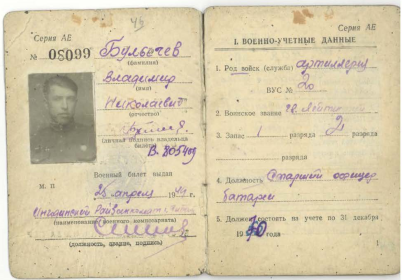 Серия АЕ
№ 08099
Булычев
(фамилия)
Владимир
(имя)
Николаевич
(отчество)
(личная подпись владельца билета)
Военный билет выдан
М. П.
апреля 19 г.
(наименование военного комиссариата)
(должность, звание, подпись)
Серия АЕ
I. ВОЕННО-УЧЕТНЫЕ ДАННЫЕ
1. Род войск (службы) артиллерия
ВУС № 20
2. Военское звание
3. Запас 1 разряда 2
разряда
4. Должность Старший офицер
батареи
5. Должен состоять на учете по 31 декабря
1970 года
1